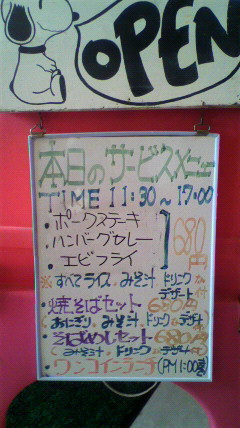 OPEN
本日のサービスメニュー
TIME 11:30～17:00
・ポークステーキ
・ハンバーグカレー
・エビフライ
680円
※すべてライス みそ汁 ドリンク デザート付
焼そばセット 680円
おにぎり みそ汁 ドリンク デザート
そばめしセット 680円
みそ汁 ドリンク デザート付
ワンコインランチ (PM 1:00迄)